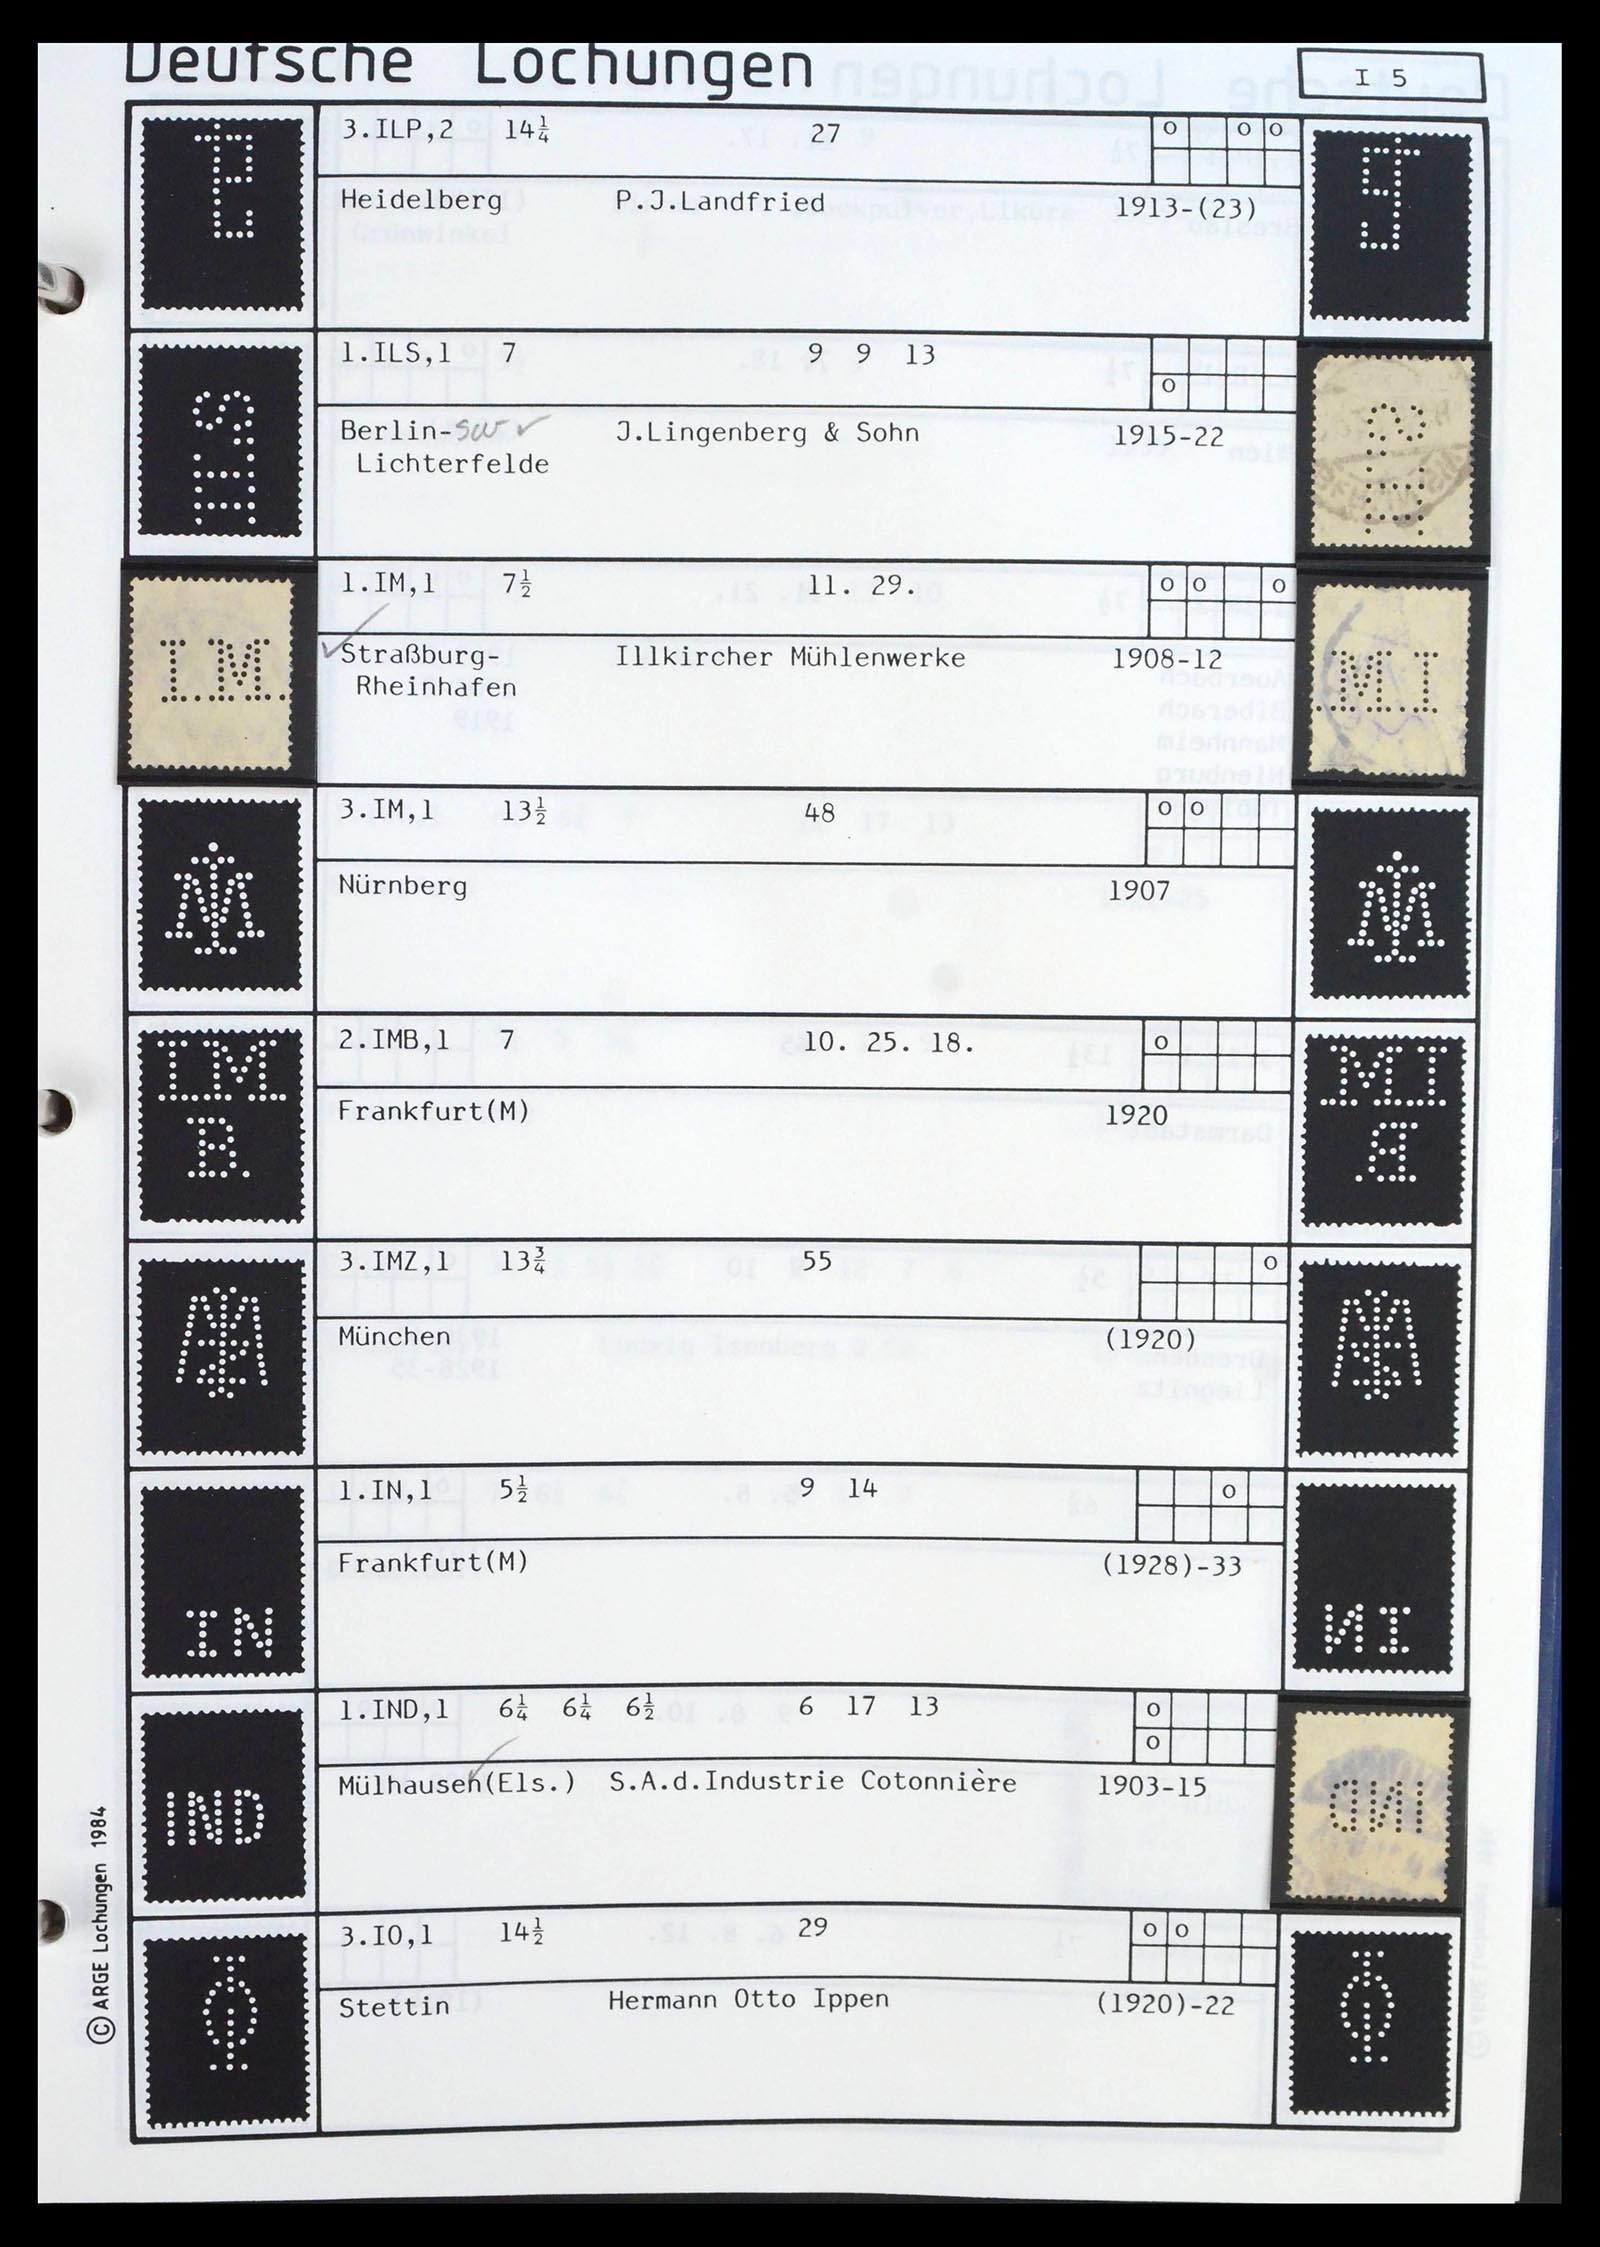 Deutsche Lochungen
I 5
3.ILP,2 14¼ 27
o o o
Heidelberg P.J.Landfried 1913-(23)
1.ILS,1 7 9 9 13
o
Berlin-SW ✓ J.Lingenberg & Sohn 1915-22
Lichterfelde
1.IM,1 7½ 11. 29.
o o o
Straßburg- Illkircher Mühlenwerke 1908-12
Rheinhafen
IM
3.IM,1 13½ 48
o o
Nürnberg 1907
2.IMB,1 7 10. 25. 18.
o
Frankfurt(M) 1920
IM
B
3.IMZ,1 13¾ 55
o
München (1920)
1.IN,1 5½ 9 14
o
Frankfurt(M) (1928)-33
IN
1.IND,1 6¼ 6¼ 6½ 6 17 13
o
o
Mülhausen(Els.) S.A.d.Industrie Cotonnière 1903-15
IND
3.IO,1 14½ 29
o o
Stettin Hermann Otto Ippen (1920)-22
© ARGE Lochungen 1984